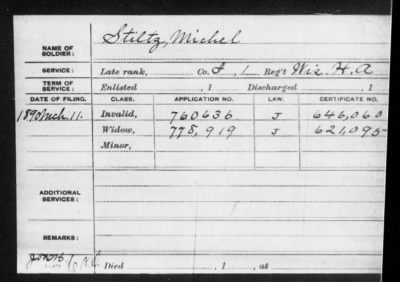 NAME OF SOLDIER: Stiltz, Michel
SERVICE: Late rank, Co. I, 1 Reg't Wis. H. A.
TERM OF SERVICE: Enlisted , 1 Discharged , 1
DATE OF FILING. CLASS. APPLICATION NO. LAW. CERTIFICATE NO.
1890 Mch. 11. Invalid, 760636 J 646,060
Widow, 778,919 J 621,095
Minor,
ADDITIONAL SERVICES:
REMARKS:
Died , 1 , at